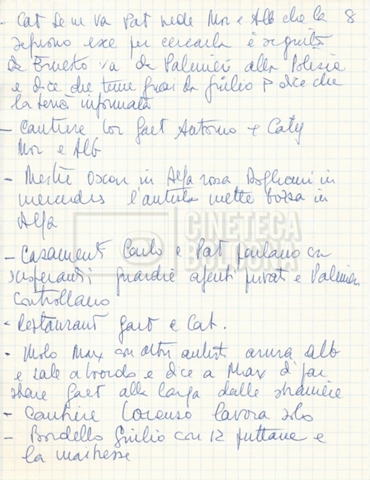 - Cat se ne va Pat vede Mor e Alb che la 8
seguono esce per cercarla è seguita
da Ernesto va da Palmieri alla Polizia
e dice che teme guai da Giulio P dice che
la terrà informata
- Cantiere Lor Gaet Antonio + Caty
Mor e Alb
- Mestre Oscar in Alfa rosa Dogliani in
mercedes l'autista mette borsa in
Alfa
- Casamenti Carlo e Pat parlano con
guardie agenti privati e Palmieri
controllano
- Restaurant Gaet e Cat.
- Molo Max con altri autisti arriva Alb
e sale a bordo e dice a Max di far
stare Gaet alla larga dalle straniere
- Cantiere Lorenzo lavora solo
- Bordello Giulio con 12 puttane e
la maitresse
CINETECA
BOLOGNA